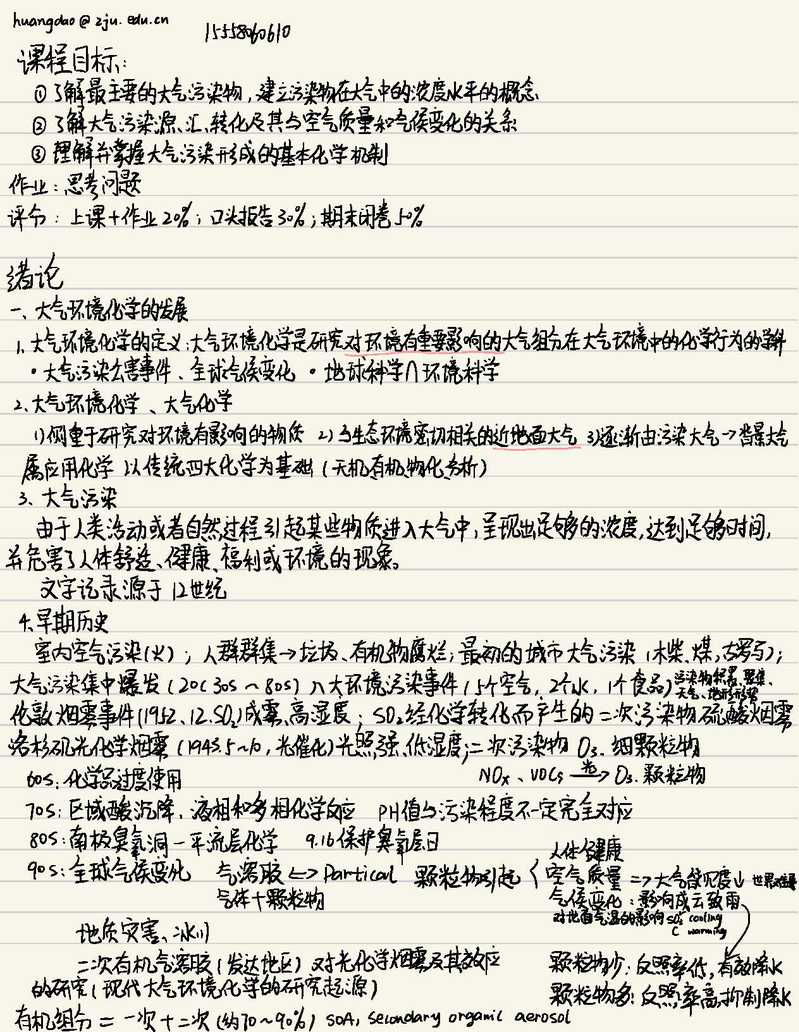 huangdao@zju.edu.cn 15558060610
课程目标:
① 了解最主要的大气污染物，建立污染物在大气中的浓度水平的概念
② 了解大气污染源、汇、转化及其与空气质量和气候变化的关系
③ 理解并掌握大气污染形成的基本化学机制
作业：思考问题
评分：上课+作业20%；口头报告30%；期末闭卷50%
绪论
一、大气环境化学的发展
1. 大气环境化学的定义：大气环境化学是研究对环境有重要影响的大气组分在大气环境中的化学行为的学科
·大气污染公害事件、全球气候变化 ·地球科学∩环境科学
2. 大气环境化学、大气化学
1) 侧重于研究对环境有影响的物质 2) 与生态环境密切相关的近地面大气 3) 逐渐由污染大气→背景大气
属应用化学 以传统四大化学为基础（无机、有机、物化、分析）
3、大气污染
由于人类活动或者自然过程引起某些物质进入大气中，呈现出足够的浓度，达到足够时间，
并危害了人体舒适、健康、福利或环境的现象。
文字记录源于12世纪
4. 早期历史
室内空气污染(火)；人群群集→垃圾、有机物腐烂；最初的城市大气污染（木柴、煤，古罗马）；
大气污染集中爆发(20C 30s~80s) 八大环境污染事件（5个空气，2个水，1个食品）污染物积累、聚集、
天气、地形形势
伦敦烟雾事件(1952.12.SO₂)成雾、高湿度；SO₂经化学转化而产生的二次污染物硫酸烟雾
洛杉矶光化学烟雾(1943.5~10，光催化)光照强、低湿度；二次污染物 O₃、细颗粒物
60s：化学品过度使用 NOx、VOCs 光→ O₃、颗粒物
70s：区域酸沉降、液相和多相化学反应 PH值与污染程度不一定完全对应
80s：南极臭氧洞—平流层化学 9.16保护臭氧层日
90s：全球气候变化 气溶胶<=>Partical 颗粒物引起
气体+颗粒物
人体健康
空气质量 => 大气能见度↓
气候变化：影响成云致雨
对地面气温的影响 SO₄²⁻ cooling
C warming
地质灾害、冰川
二次有机气溶胶（发达地区）对光化学烟雾及其效应
的研究（现代大气环境化学的研究起源）
颗粒物少：反照率低，有效降水
颗粒物多：反照率高，抑制降水
有机组分 = 一次+二次(约70~90%) SOA, secondary organic aerosol